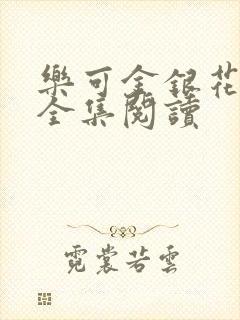 樂可金銀花
全集閱讀
霓裳若雲